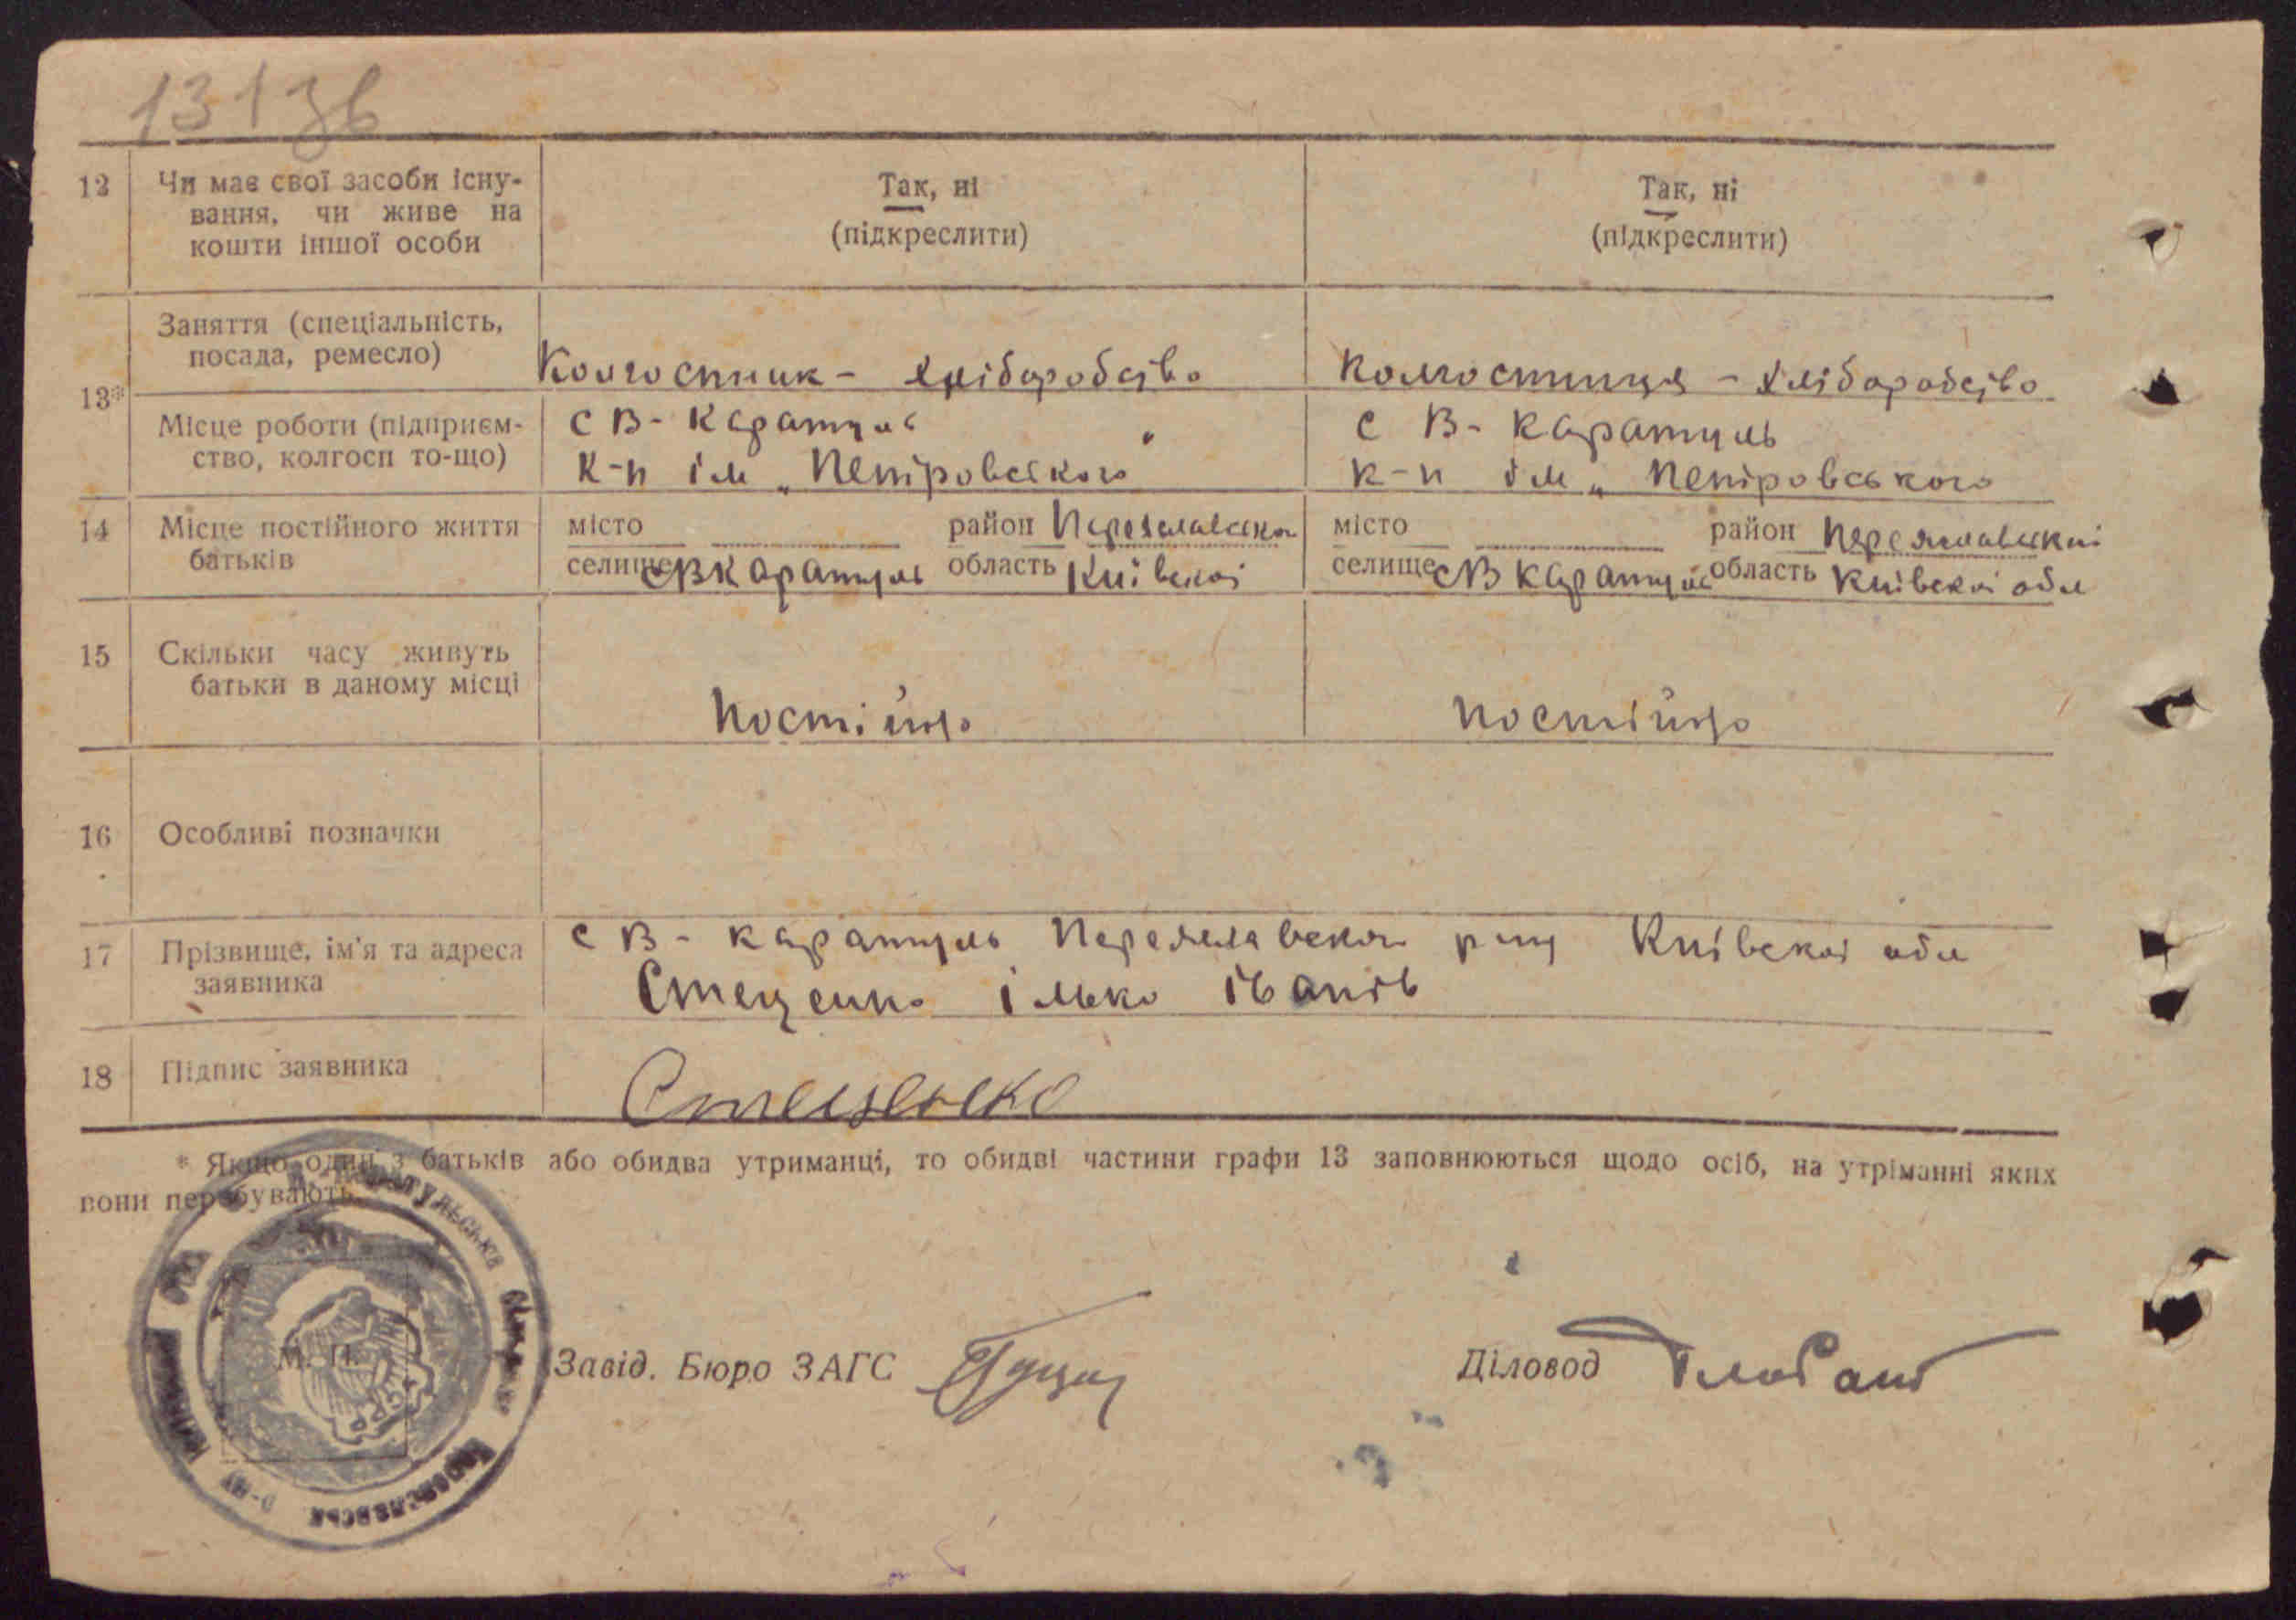 131зв
12 Чи має свої засоби існу-
вання, чи живе на
кошти іншої особи
Так, ні
(підкреслити)
Так, ні
(підкреслити)
13*
Заняття (спеціальність,
посада, ремесло)
Колгоспник - хліборобство
Колгоспниця - хліборобство
Місце роботи (підприєм-
ство, колгосп то-що)
с В-Каратуль
к-п ім „Петровського"
с В-Каратуль
к-п ім „Петровського
14 Місце постійного життя
батьків
місто район Переяславской
селище с В Каратуль область Київскої
місто район Переяславскій
селище с В Каратуль область Київскої обл
15 Скільки часу живуть
батьки в даному місці
постійно
постійно
16 Особливі позначки
17 Прізвище, ім'я та адреса
заявника
с В-Каратуль Переяславской р-ну Київскої обл
Стеценко Ілько Іванів
18 Підпис заявника
Стеценко
* Якщо один з батьків або обидва утриманці, то обидві частини графи 13 заповнюються щодо осіб, на утріманні яких
вони перебувають.
М. П.
Завід. Бюро ЗАГС
Діловод